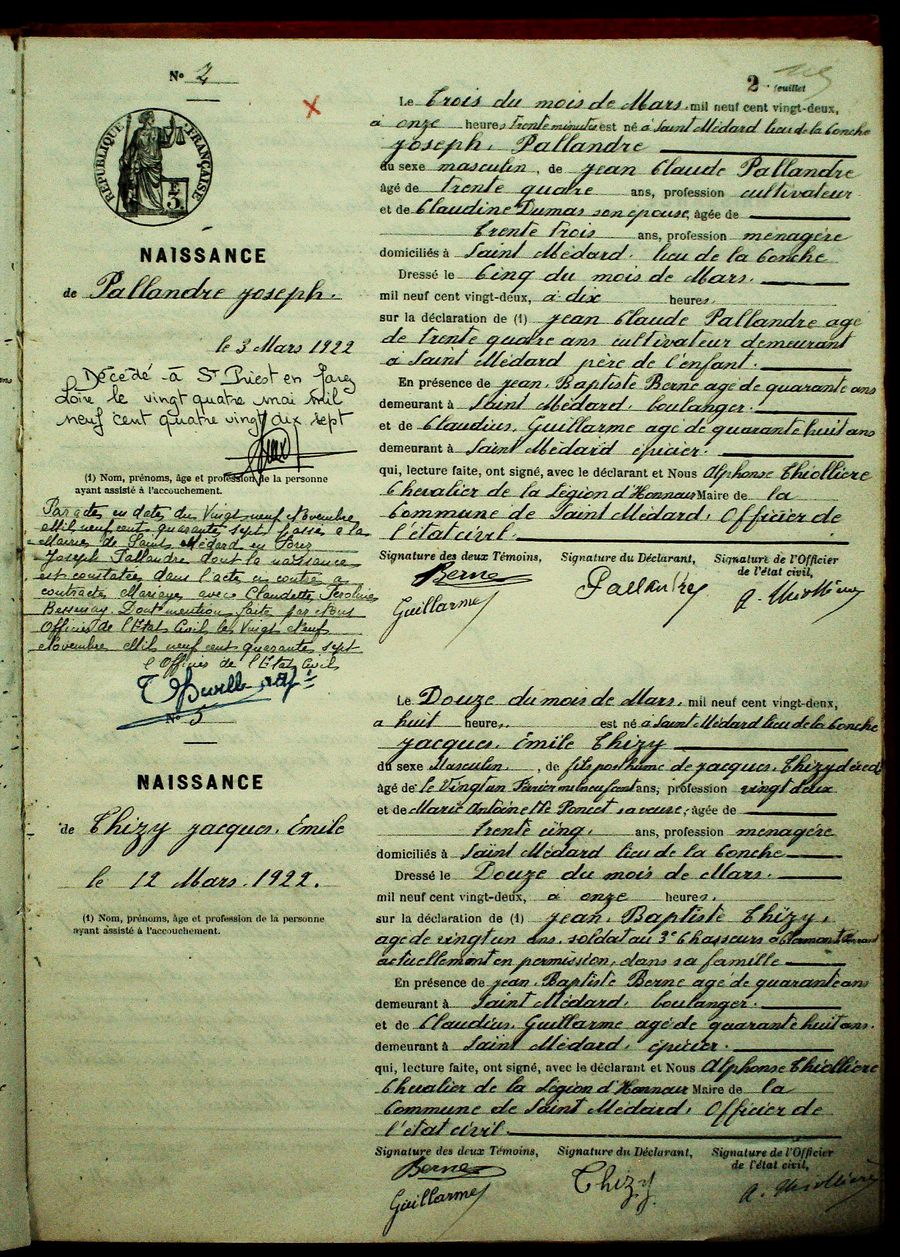 N° 2
RÉPUBLIQUE FRANÇAISE
3
NAISSANCE
de Pallandre Joseph.
le 3 Mars 1922
Décédé à St Priest en Jarez
Loire le vingt quatre mai mil
neuf cent quatre vingt dix sept
(1) Nom, prénoms, âge et profession de la personne
ayant assisté à l'accouchement.
Par acte en date du Vingt neuf Novembre
Mil neuf cent quarante sept passé à la
Mairie de Saint Médard en Forez
Joseph Pallandre dont la naissance
est constatée dans l'acte ci contre a
contracté Mariage avec Claudette
Bessenay. Dont mention faite par Nous
Officier de l'Etat Civil le Vingt Neuf
Novembre Mil neuf cent quarante sept
l'Officier de l'Etat Civil
2
feuillet
Le Trois du mois de Mars, mil neuf cent vingt-deux,
à onze heures trente minutes est né à Saint Médard lieu de la Conche
Joseph, Pallandre
du sexe masculin, de Jean Claude Pallandre
âgé de trente quare ans, profession cultivateur
et de Claudine Dumas son épouse, âgée de
trente trois ans, profession ménagére
domiciliés à Saint Médard lieu de la Conche
Dressé le Cinq du mois de Mars.
mil neuf cent vingt-deux, à dix heures.
sur la déclaration de (1) Jean Claude Pallandre agé
de trente quare ans cultivateur demeurant
à Saint Médard père de l'enfant.
En présence de Jean, Baptiste Berne agé de quarante ans
demeurant à Saint Médard, boulanger.
et de Claudius, Guillarme agé de quarante huit ans
demeurant à Saint Médard épicier.
qui, lecture faite, ont signé, avec le déclarant et Nous Alphonse Thiolliere
Chevalier de la Légion d'Honneur Maire de la
Commune de Saint Médard, Officier de
l'état civil.
Signature des deux Témoins, Signature du Déclarant, Signature de l'Officier
de l'état civil,
Berne
Pallandre
A. Thiolliere
Guillarme
N° 5
NAISSANCE
de Thizy Jacques, Emile
le 12 Mars. 1922.
(1) Nom, prénoms, âge et profession de la personne
ayant assisté à l'accouchement.
Le Douze du mois de Mars, mil neuf cent vingt-deux,
à huit heure, est né à Saint Médard lieu de la Conche
Jacques, Emile Thizy
du sexe Masculin, de fils posthume de Jacques, Thizy décédé
âgé de le Vingt un Février mil neuf cent ans, profession vingt deux
et de Marie Antoinette Poncet sa veuve, âgée de
trente cinq. ans, profession ménagére
domiciliés à Saint Médard lieu de la Conche
Dressé le Douze du mois de Mars.
mil neuf cent vingt-deux, à onze heures.
sur la déclaration de (1) Jean, Baptiste Thizy,
agé de vingt un ans, soldat au 3e Chasseurs à Clermont Ferrand
actuellement en permission, dans sa famille
En présence de Jean, Baptiste Berne agé de quarante ans
demeurant à Saint Médard, boulanger.
et de Claudius, Guillarme agé de quarante huit ans.
demeurant à Saint Médard, épicier.
qui, lecture faite, ont signé, avec le déclarant et Nous Alphonse Thiolliere
Chevalier de la Légion d'Honneur Maire de la
Commune de Saint Médard, Officier de
l'état civil.
Signature des deux Témoins, Signature du Déclarant, Signature de l'Officier
de l'état civil,
Berne
Thizy
A. Thiolliere
Guillarme